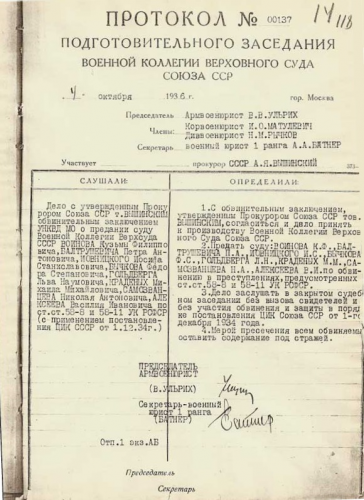 14/118
ПРОТОКОЛ № 00137
ПОДГОТОВИТЕЛЬНОГО ЗАСЕДАНИЯ
ВОЕННОЙ КОЛЛЕГИИ ВЕРХОВНОГО СУДА
СОЮЗА ССР
4 октября 1936 г. гор. Москва
Председатель Армвоенюрист В.В.УЛЬРИХ
Члены: Корвоенюрист И.О.МАТУЛЕВИЧ
Диввоенюрист Н.М.РЫЧКОВ
Секретарь военный юрист 1 ранга А.А.БАТНЕР
Участвует прокурор СССР А.Я.ВЫШИНСКИЙ
СЛУШАЛИ:
Дело с утвержденным Проку
рором Союза ССР т.Вышинским
обвинительным заключением
УНКВД МО о предании суду
Военной Коллегии Верхсуда
СССР ВОИНОВА Кузьмы Филиппо
вича, ВАЛТРУШЕВИЧА Петра Ан-
тоновича, ИОВНИЦКОГО Иосифа
Станиславовича, БЫЧКОВА Фё-
дора Степановича, ГОЛЬДБЕРГА
Льва Наумовича, КРАЛЕНЫХ Ми-
хаила Михайловича, САМОЗВАН-
ЦЕВА Николая Антоновича, АЛЕ
КСЕЕВА Василия Ивановича по
ст.ст.58-8 и 58-11 УК РСФСР
(с применением постановле-
ния ЦИК СССР от 1.12.34г.)
ОПРЕДЕЛИЛИ:
1.С обвинительным заключением,
утвержденным Прокурором Союза ССР тов.
ВЫШИНСКИМ, согласиться и дело принять
к производству Военной Коллегии Верхов-
ного Суда Союза ССР.
2.Предать суду: ВОИНОВА К.Ф., ВАЛ-
ТРУШЕВИЧА П.А., ИОВНИЦКОГО И.С., БЫЧКОВА
Ф.С., ГОЛЬДБЕРГА Л.Н., КРАЛЕНЫХ М.М., СА-
МОЗВАНЦЕВА Н.А., АЛЕКСЕЕВА В.И. по обвине-
нию в преступлениях, предусмотренных
ст.ст.58-8 и 58-11 УК РСФСР.
3.Дело заслушать в закрытом судеб-
ном заседании без вызова свидетелей и
без участия обвинения и защиты в поряд
ке Постановления ЦИК Союза ССР от 1-го
декабря 1934 года.
4.Мерой пресечения всем обвиняемым
оставить содержание под стражей.
ПРЕДСЕДАТЕЛЬ
АРМВОЕНЮРИСТ
(В.УЛЬРИХ)
Секретарь-военный
юрист 1 ранга
(БАТНЕР)
Отп.1 экз.АВ
Председатель
Секретарь